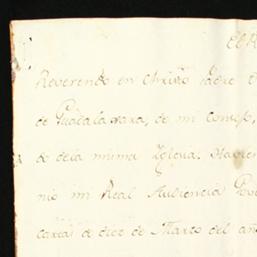 El R
Reverendo en Christo Padre
de Guadalaxara, de mi consejo,
do dela misma Yglesia. Havien
nio mi Real Audiencia
cartas de diez de Marzo del año